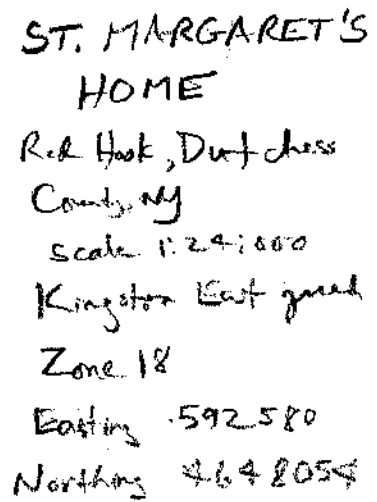 ST. MARGARET'S
HOME
Red Hook, Dutchess
County, NY
Scale 1:24,000
Kingston East quad
Zone 18
Easting 592580
Northing 4648054